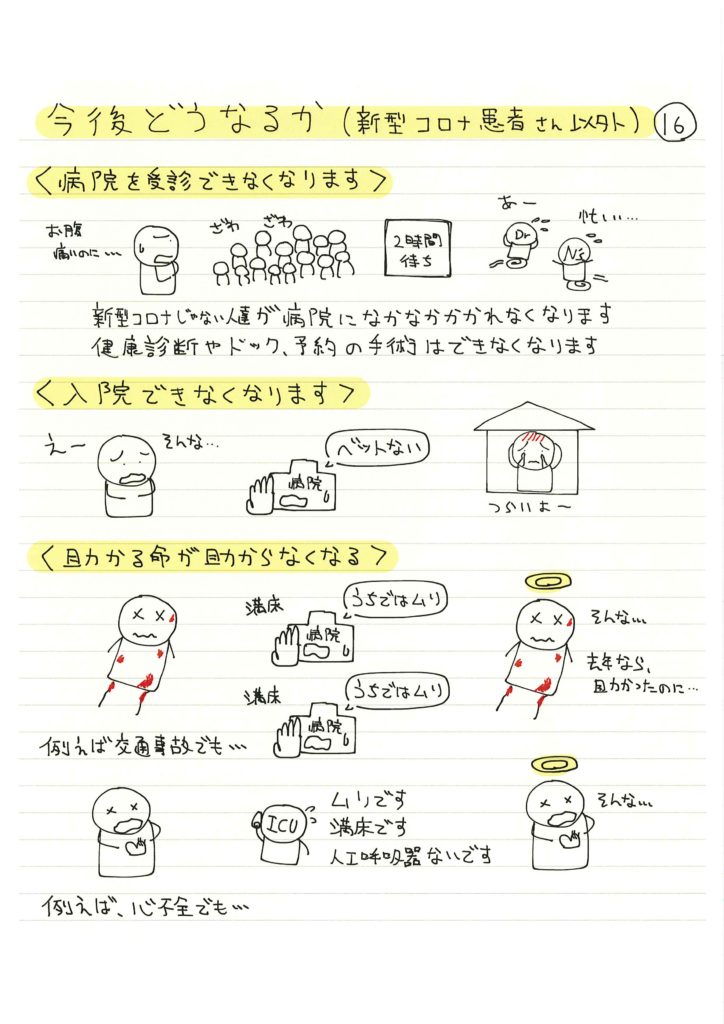 今後どうなるか(新型コロナ患者さん以外) 16
<病院を受診できなくなります>
お腹
痛いのに…
ざわ ざわ
2時間
待ち
あー
忙しい…
Dr
Ns
新型コロナじゃない人達が病院になかなかかかれなくなります
健康診断やドック、予約の手術はできなくなります
<入院できなくなります>
えー
そんな…
病院
ベットない
つらいよ〜
<助かる命が助からなくなる>
満床
うちではムリ
病院
満床
うちではムリ
病院
そんな…
去年なら、
助かったのに…
例えば交通事故でも…
ICU
ムリです
満床です
人工呼吸器ないです
そんな…
例えば、心不全でも…